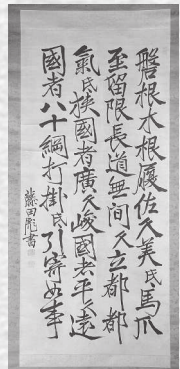 磐根木根履佐久美氐馬爪
至留限長道無間久立都都
氣氐狭國者廣久峻國者平久遠
國者八十綱打掛氐引寄如事
藤田彪書